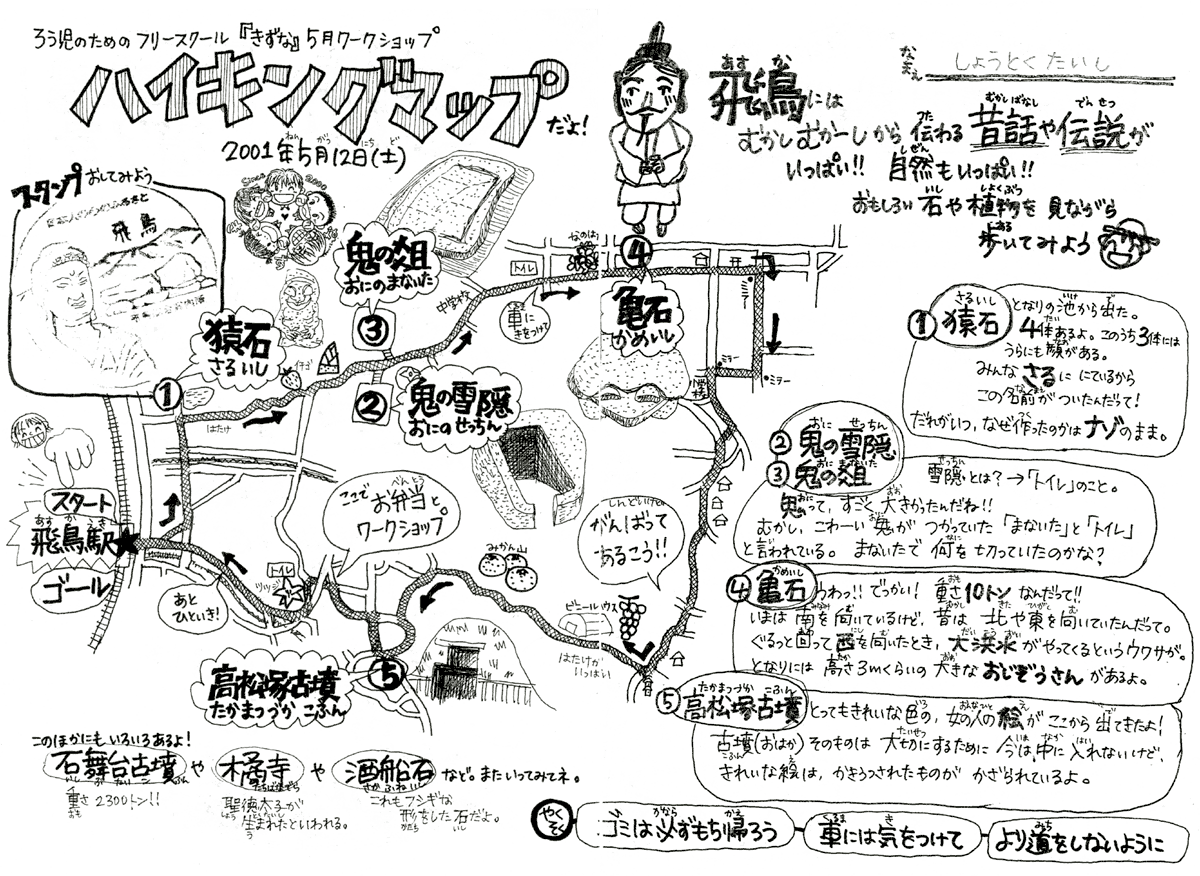 ろう児のための フリースクール『きずな』5月ワークショップ
ハイキングマップだよ!
2001年5月12日(土)
ねん がつ にち ど
なまえ しょうとくたいし
飛鳥には
あすか
むかしむかーしから 伝わる 昔話や伝説が
つた むかしばなし でんせつ
いっぱい!! 自然もいっぱい!!
しぜん
おもしろい 石や植物を 見ながら
いし しょくぶつ み
歩いてみよう
ある
スタンプ おしてみよう
飛鳥
① 猿石
さるいし
② 鬼の雪隠
おにのせっちん
③ 鬼の俎
おにのまないた
④ 亀石
かめいし
中学校
トイレ
車に
きをつけて
なのはな
ミラー
ミラー
ミラー
イチゴ
はたけ
スタート
飛鳥駅
あすかえき
ゴール
あと
ひといき!
トイレ
ツツジ
ここで
お弁当と
べんとう
ワークショップ
みかん山
しんどいけど
がんばって
あるこう!!
ビニールハウス
はたけが
いっぱい
⑤ 高松塚古墳
たかまつづか こふん
① 猿石
さるいし
となりの池から出た。
4体あるよ。このうち3体には
うらにも顔がある。
みんな さるに にているから
この名前がついたんだって!
だれがいつ、なぜ作ったのかは ナゾのまま。
② 鬼の雪隠
おに せっちん
③ 鬼の俎
おに まないた
雪隠とは?→「トイレ」のこと。
せっちん
鬼って、すごく 大きかったんだね!!
むかし、こわーい 鬼が つかっていた「まないた」と「トイレ」
と言われている。 まないたで 何を切っていたのかな?
④ 亀石
かめいし
わわっ!! でっかい! 重さ10トン なんだって!!
いまは 南を向いているけど、昔は 北や東を向いていたんだって。
ぐるっと回って 西を向いたとき、大洪水 がやってくるというウワサが。
となりには 高さ3mくらいの 大きな おじぞうさん があるよ。
⑤ 高松塚古墳
たかまつづか こふん
とってもきれいな色の、女の人の絵が ここから 出てきたよ!
古墳(おはか)そのものは 大切にするために 今は、中に 入れないけど、
きれいな絵は、かきうつされたものが かざられているよ。
このほかにも いろいろあるよ!
石舞台古墳 や 橘寺 や 酒船石 など。またいってみてネ。
重さ2300トン!!
聖徳太子が
生まれたといわれる。
これもフシギな
形をした石だよ。
やくそく
ゴミは必ずもち帰ろう
車には気をつけて
より道をしないように